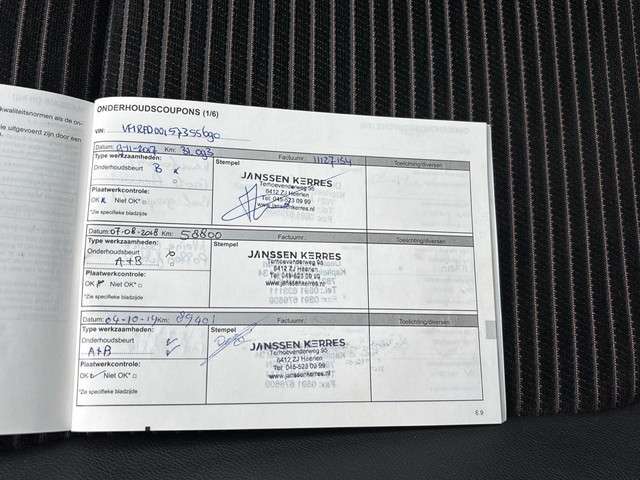 kwaliteitsnormen als de on-
ie uitgevoerd zijn door een
ONDERHOUDSCOUPONS (1/6)
VIN:
Datum: Km:
Factuurnr.: 11127154
Toelichting/diversen
Type werkzaamheden:
Stempel
Onderhoudsbeurt B
JANSSEN KERRES
Terhoevenderweg 95
6412 ZJ Heerlen
Tel. 045-523 09 99
www.janssenkerres.nl
Plaatwerkcontrole:
OK Niet OK*
*Zie specifieke bladzijde
Datum: 07-08-2018 Km: 58800
Factuurnr.:
Toelichting/diversen
Type werkzaamheden:
Stempel
Onderhoudsbeurt
A+B
JANSSEN KERRES
Terhoevenderweg 95
6412 ZJ Heerlen
Tel. 045-523 09 99
www.janssenkerres.nl
Plaatwerkcontrole:
OK Niet OK*
*Zie specifieke bladzijde
Datum: 04-10-19 Km: 89401
Factuurnr.:
Toelichting/diversen
Type werkzaamheden:
Stempel
Onderhoudsbeurt
A+B
JANSSEN KERRES
Terhoevenderweg 95
6412 ZJ Heerlen
Tel. 045-523 09 99
www.janssenkerres.nl
Plaatwerkcontrole:
OK Niet OK*
*Zie specifieke bladzijde
6.9